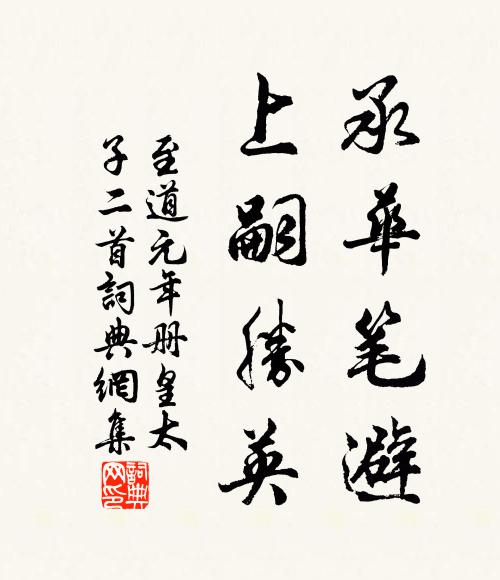 承華笔避
上嗣勝英
至道元年册皇太
子二首詞典網集
詞典网印